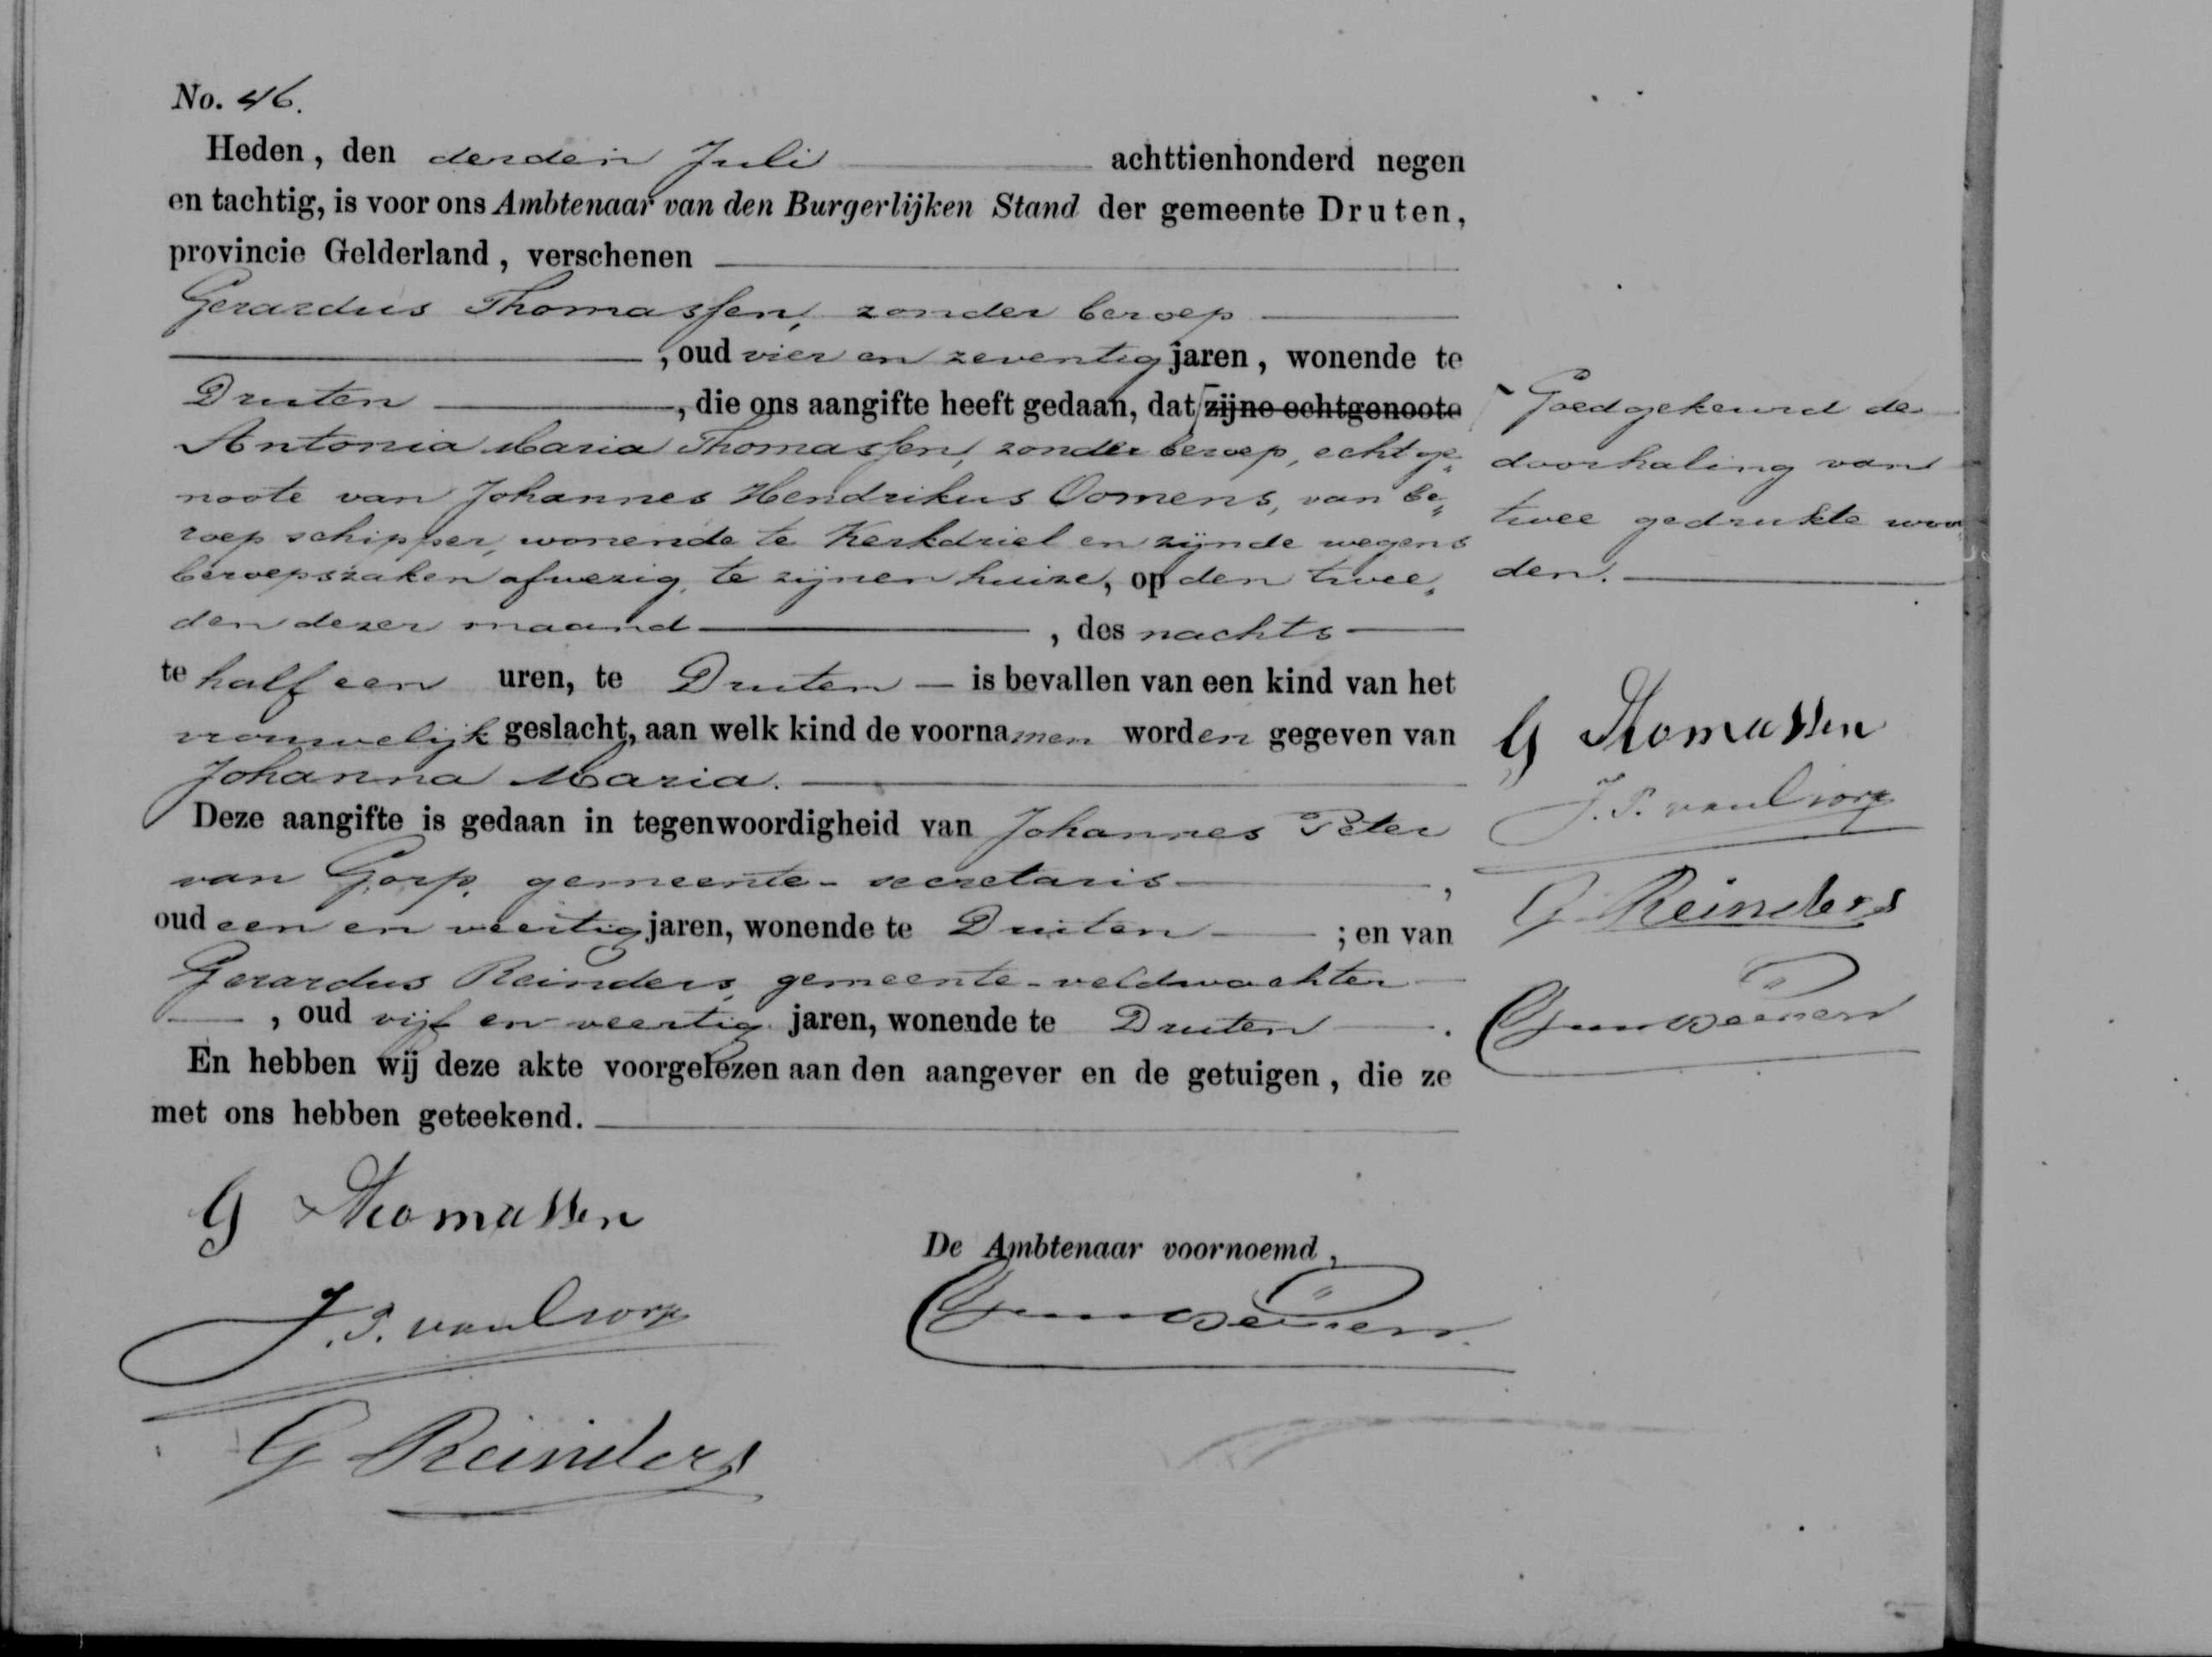 No. 46.
Heden, den derden Juli achttienhonderd negen
en tachtig, is voor ons Ambtenaar van den Burgerlijken Stand der gemeente Druten,
provincie Gelderland, verschenen
Gerardus Thomassen, zonder beroep
, oud vier en zeventig jaren, wonende te
Druten, die ons aangifte heeft gedaan, dat zijne echtgenoote
Antonia Maria Thomassen, zonder beroep, echtge„
noote van Johannes Hendrikus Oomens, van be„
roep schipper, wonende te Kerkdriel en zijnde wegens
beroepszaken afwezig, te zijnen huize, op den twee„
den dezer maand, des nachts
te half een uren, te Druten — is bevallen van een kind van het
vrouwelijk geslacht, aan welk kind de voornamen worden gegeven van
Johanna Maria.
Deze aangifte is gedaan in tegenwoordigheid van Johannes Peter
van Gorp, gemeente-secretaris,
oud een en veertig jaren, wonende te Druten ; en van
Gerardus Reinders, gemeente-veldwachter
, oud vijf en veertig jaren, wonende te Druten.
En hebben wij deze akte voorgelezen aan den aangever en de getuigen, die ze
met ons hebben geteekend.
G Thomassen
J. P. van Gorp
G Reinders
De Ambtenaar voornoemd,
Goedgekeurd de
doorhaling van
twee gedrukte woor„
den.
G Thomassen
J. P. van Gorp
G Reinders